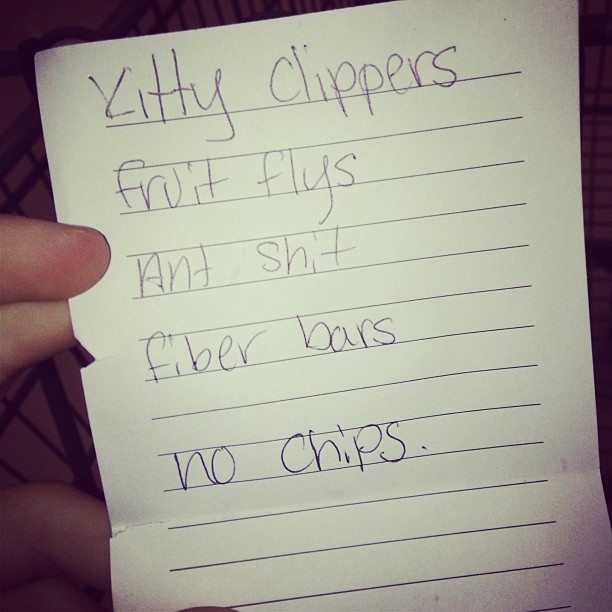 Kitty Clippers
fruit flys
Ant shit
fiber bars
no chips.